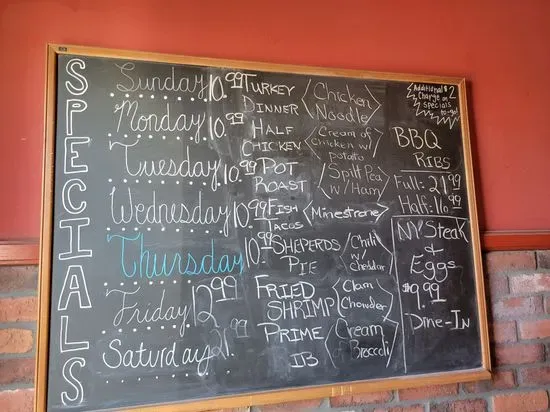 SPECIALS
Sunday 10.99 TURKEY DINNER Chicken Noodle
Monday 10.99 HALF CHICKEN Cream of Chicken w/ potato
Tuesday 10.99 POT ROAST Split Pea w/ Ham
Wednesday 10.99 FISH TACOS Minestrone
Thursday 10.99 SHEPERDS PIE Chili w/ cheddar
Friday 12.99 FRIED SHRIMP Clam Chowder
Saturday 21.99 PRIME IB Cream of Broccoli
Additional $2
Charge on
Specials
to-go!
BBQ
RIBS
Full: 21.99
Half: 16.99
NY Steak
&
Eggs
$9.99
Dine-In